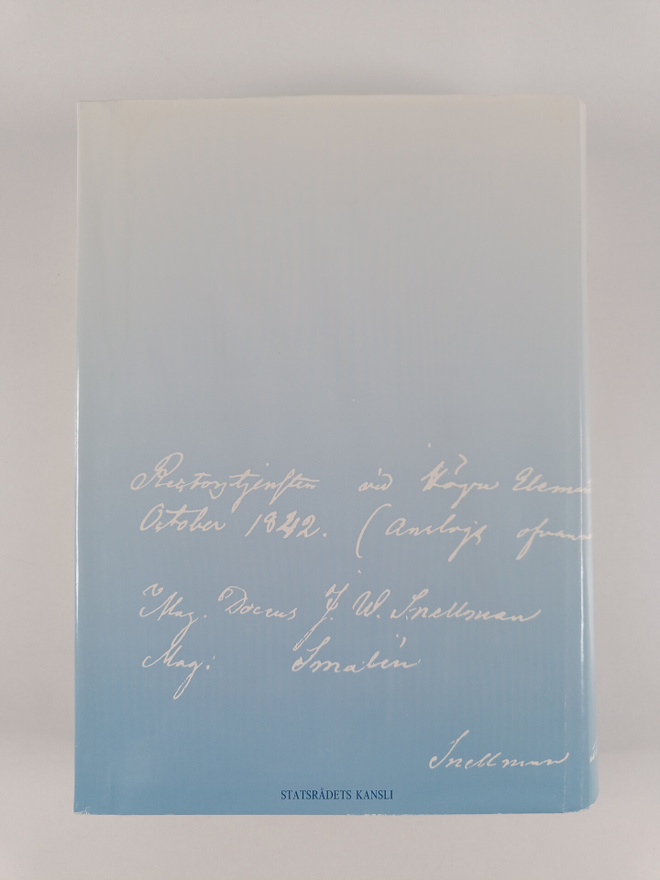 Rectorstjensten vid Högre Elemen
October 1842. (Anslogs ofvan
Mag. Docens J. W. Snellman
Mag: Smalén
Snellman
STATSRÅDETS KANSLI